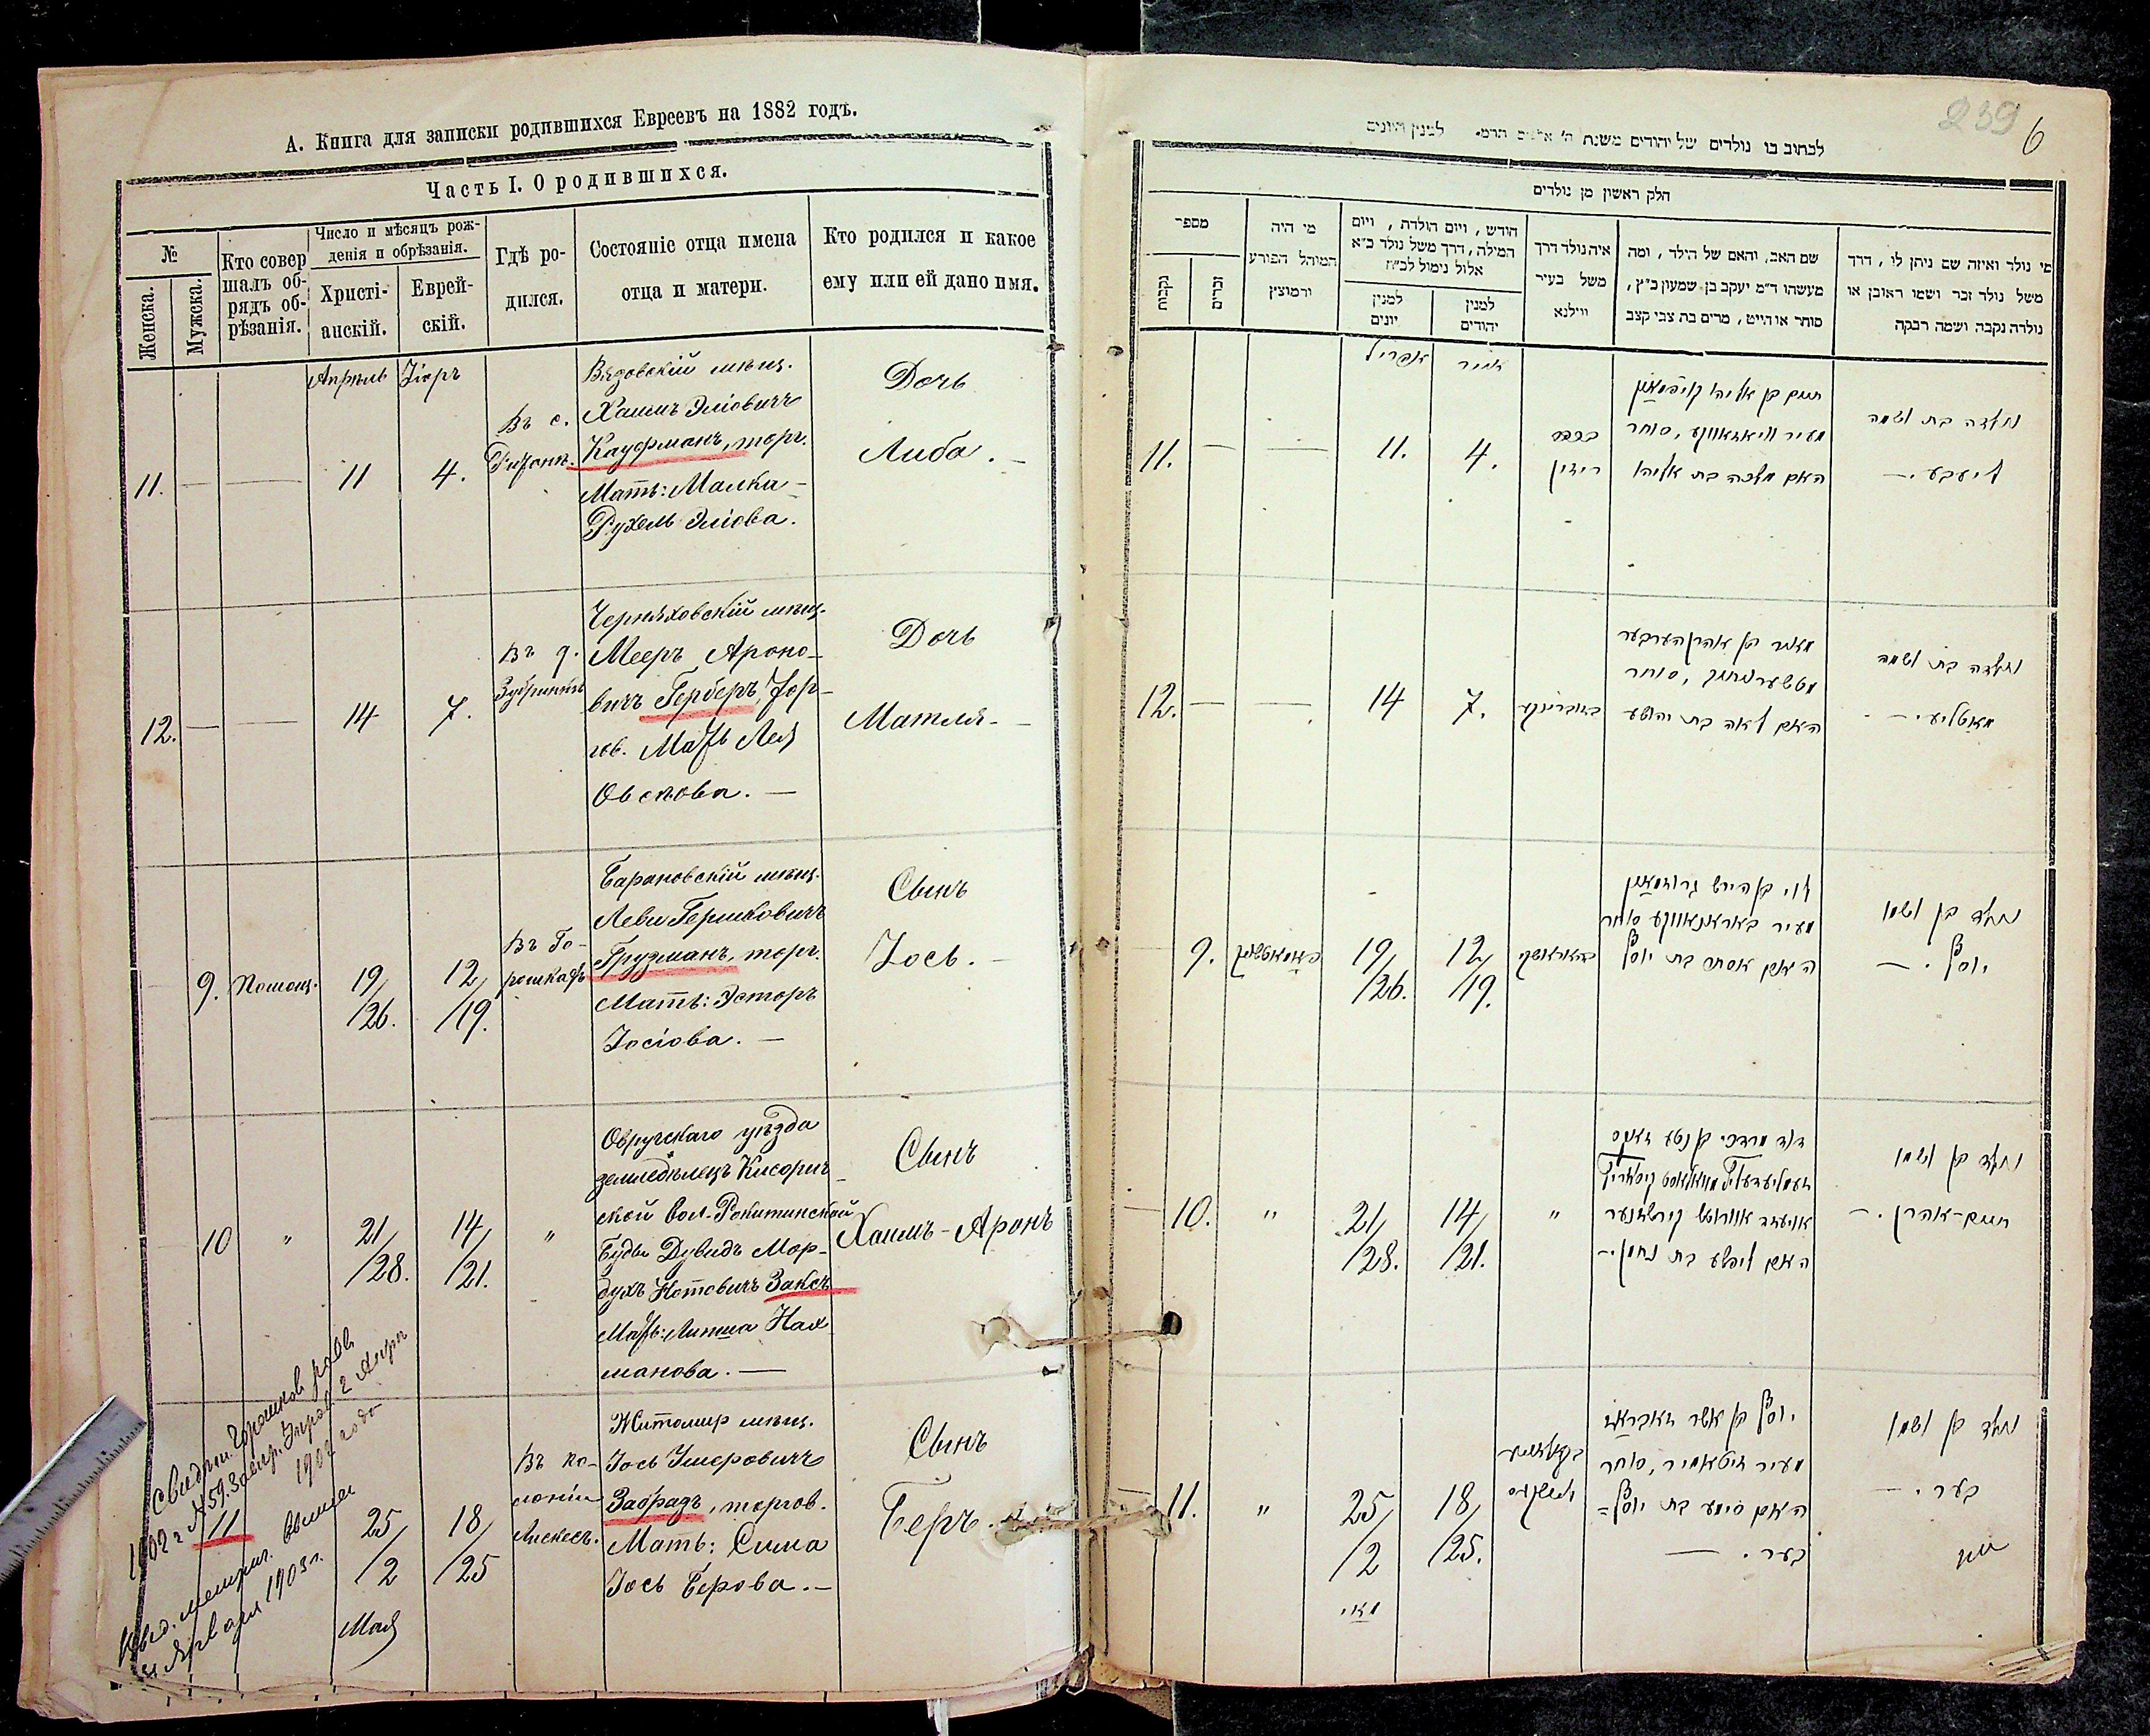 А. Книга для записки родившихся Евреевъ на 1882 годъ.
Часть I. О родившихся.
№
Женска.
Мужска.
Кто совер
шалъ об-
рядъ об-
рѣзанія.
Число и мѣсяцъ рож-
денія и обрѣзанія.
Христі-
анскій.
Еврей-
скій.
Гдѣ ро-
дился.
Состояніе отца имена
отца и матери.
Кто родился и какое
ему или ей дано имя.
Апрѣль Іяръ
11. — — 11 4.
Въ с.
Вязовскій мѣщ.
Хаимъ Эліовичъ
Кауфманъ, торг.
Мать: Малка-
Рухель Эліова.
Дочь
Либа. —
12. — — 14 7.
Въ д.
Черняховскій мѣщ.
Мееръ Ароно-
вичъ Герберъ, Тор-
гов. Мать Лея
Овсіева. —
Дочь
Матля. —
9. Помощ. 19/26. 12/19.
Въ Го-
рошкахъ
Барановскій мѣщ.
Леви Гершковичъ
Грузманъ, торг.
Мать: Эстеръ
Іосіова. —
Сынъ
Іось. —
10 " 21/28. 14/21. "
Овручскаго уѣзда
земледѣлецъ Кисорич-
ской вол. Рокитинской
Буды Дувидъ Мор-
духъ Нотовичъ Заксъ
Мать: Липша Нах
манова. —
Сынъ
Хаимъ-Аронъ
11 25/2 18/25
Мая
Въ ко-
лоніи
Житомир мѣщ.
Іось Ушеровичъ
Забрадъ, торгов.
Мать: Сима
Іось Берова. —
Сынъ
Беръ.
239 6
לכתוב בו נולדים של יהודים משנת ה' אלפים תרמ" למנין היונים
חלק ראשון מן נולדים
מספר
נקבות
זכרים
מי היה
המוהל הפורע
ומוצץ
חודש, ויום הולדת, ויום
המילה, דרך משל נולד כ"א
אלול נימול לכ"ח
למנין
יונים
למנין
יהודים
איה נולד דרך
משל בעיר
ווילנא
שם האב, והאם של הילד, ומה
מעשהו ד"מ יעקב בן שמעון כ"ץ,
סוחר או חייט, מרים בת צבי קצב
מי נולד ואיזה שם ניתן לו, דרך
משל נולד זכר ושמו ראובן או
נולדה נקבה ושמה רבקה
אפריל אייר
11. — — 11. 4.
חיים בן אליהו קויפמאן
סוחר
האם מלכה בת אליהו
נולדה בת ושמה
ליבע. —
12. — — 14 7.
מאיר בן אהרן הערבער
סוחר
האם לאה בת יהושע
נולדה בת ושמה
מאטליע. —
9. 19/26. 12/19.
לוי בן הירש גרוזמאן
מעיר באראנאווקע סוחר
האם אסתר בת יוסף
נולד בן ושמו
יוסף. —
10. " 21/28. 14/21. "
דוד מרדכי בן נטע זאקס
האם ליפשע בת נחמן. —
נולד בן ושמו
חיים-אהרן. —
11. " 25/2 18/25.
מאי
יוסף בן אשר
מעיר זיטאמיר, סוחר
האם סימע בת יוסף =
בער. —
נולד בן ושמו
בער. —